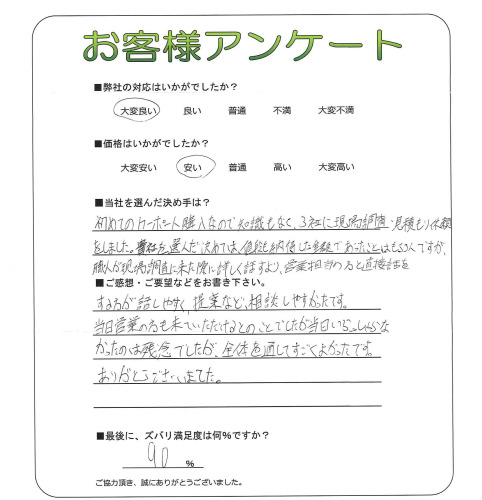 お客様アンケート
■弊社の対応はいかがでしたか？
大変良い 良い 普通 不満 大変不満
■価格はいかがでしたか？
大変安い 安い 普通 高い 大変高い
■当社を選んだ決め手は？
初めてのカーポート購入なので知識もなく、3社に現場調査・見積もり依頼
をしました。 選んだ決め手は、価格も納得した金額であったことはもちろんですが、
職人が現場調査に来た際に詳しく話すより、営業担当の方と直接話を
■ご感想・ご要望などをお書き下さい。
する方が話しやすく、提案など、相談しやすかったです。
当日営業の方も来ていただけるとのことでしたが当日いらっしゃらな
かったのは残念でしたが、全体を通してすごくよかったです。
ありがとうございました。
■最後に、ズバリ満足度は何％ですか？
90 %
ご協力頂き、誠にありがとうございました。